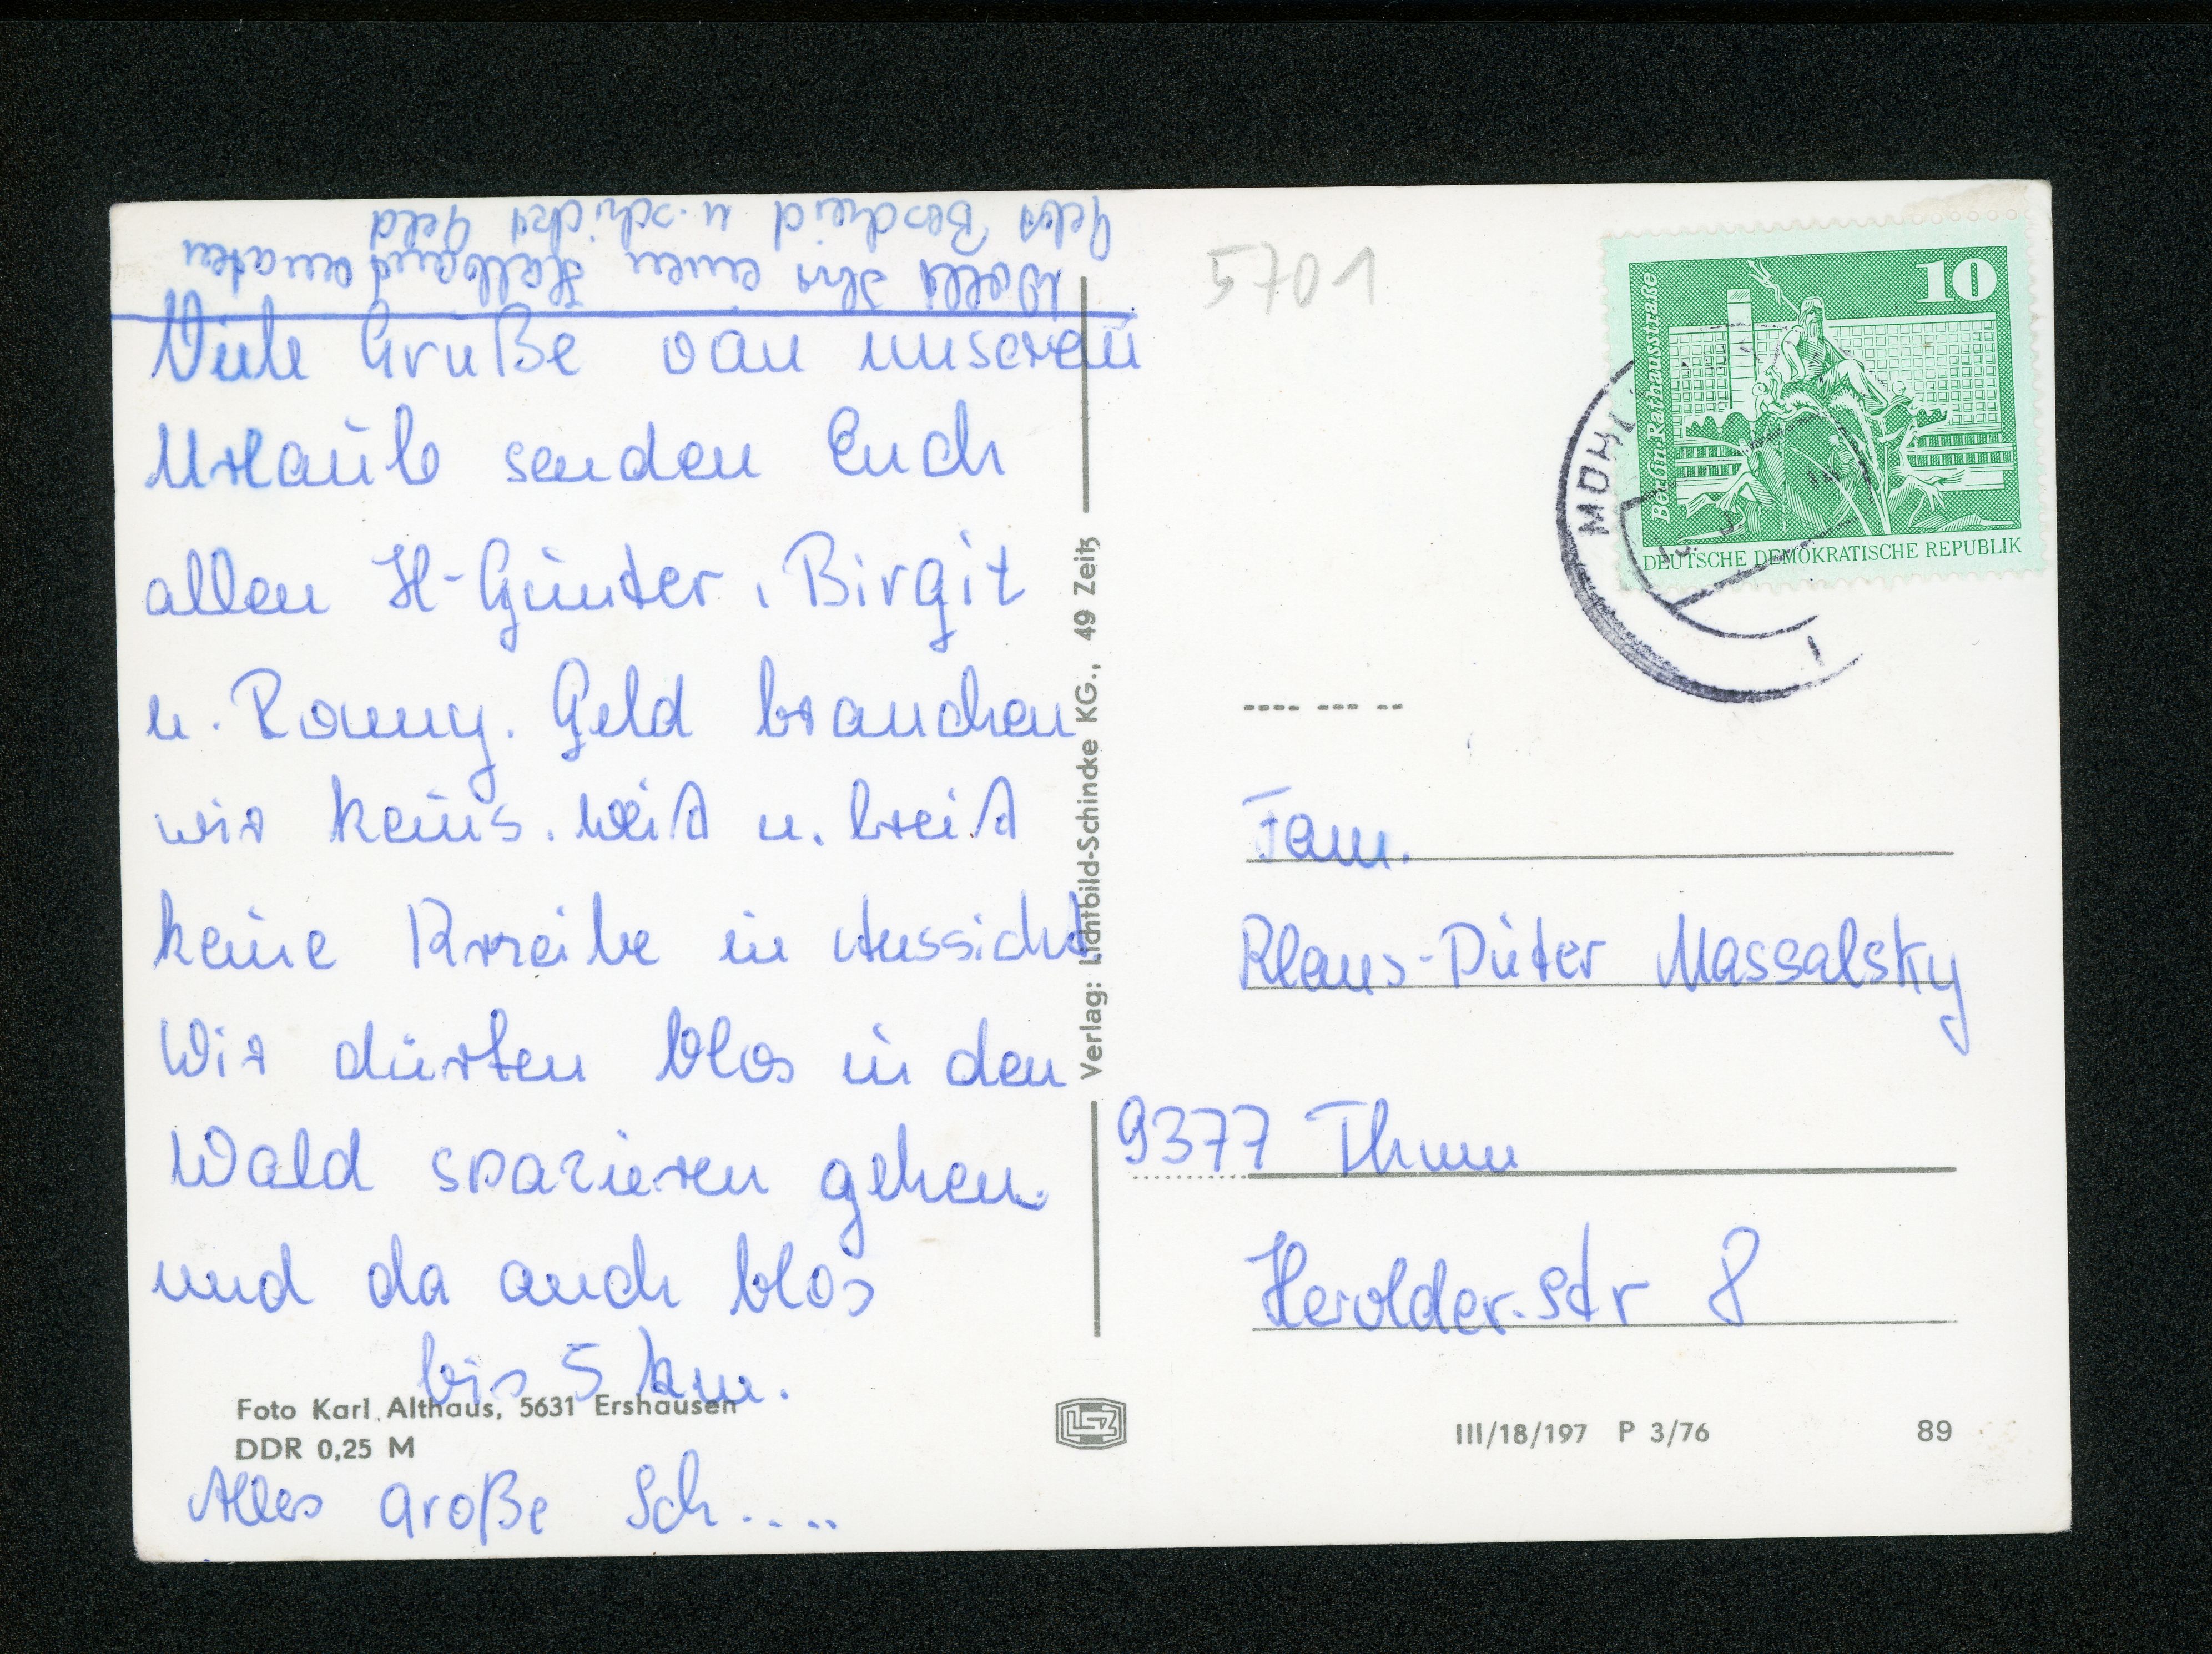 Wollt Ihr einen Halbautomaten
gebt Bescheid u. schickt Geld
Viele Grüße von unserem
Urlaub senden Euch
allen H-Günter, Birgit
u. Ronny. Geld brauchen
wir keins. Weit u. breit
keine Kneipe in Aussicht
Wir dürfen blos in den
Wald spazieren gehen.
und da auch blos
bis 5 km.
Alles große Sch....
Foto Karl Althaus, 5631 Ershausen
DDR 0,25 M
Verlag: Lichtbild-Schincke KG., 49 Zeitz
5701
10
Berlin, Rathausstraße
DEUTSCHE DEMOKRATISCHE REPUBLIK
Fam.
Klaus-Dieter Massalsky
9377 Thum
Herolder-Str 8
LSZ
III/18/197 P 3/76
89